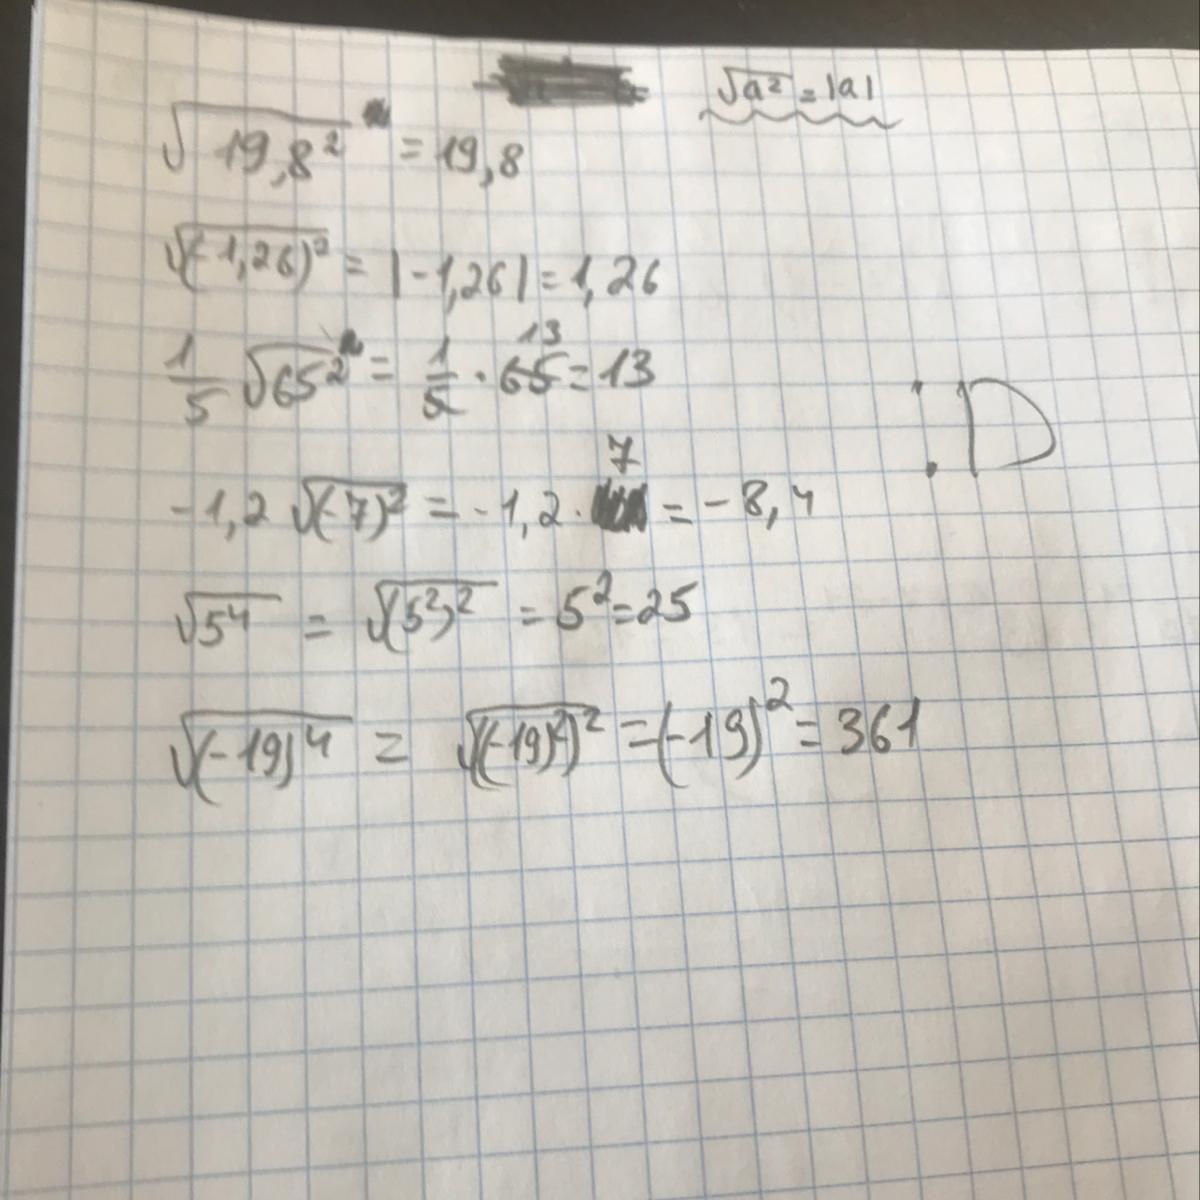 √a² = |a|
√19,8² = 19,8
√(-1,26)² = |-1,26| = 1,26
1/5 √65² = 1/5 · 65 = 13
13
7
-1,2 √(-7)² = -1,2 · = -8,4
√5⁴ = √(5²)² = 5² = 25
√(-19)⁴ = √((-19)²)² = (-19)² = 361
:D